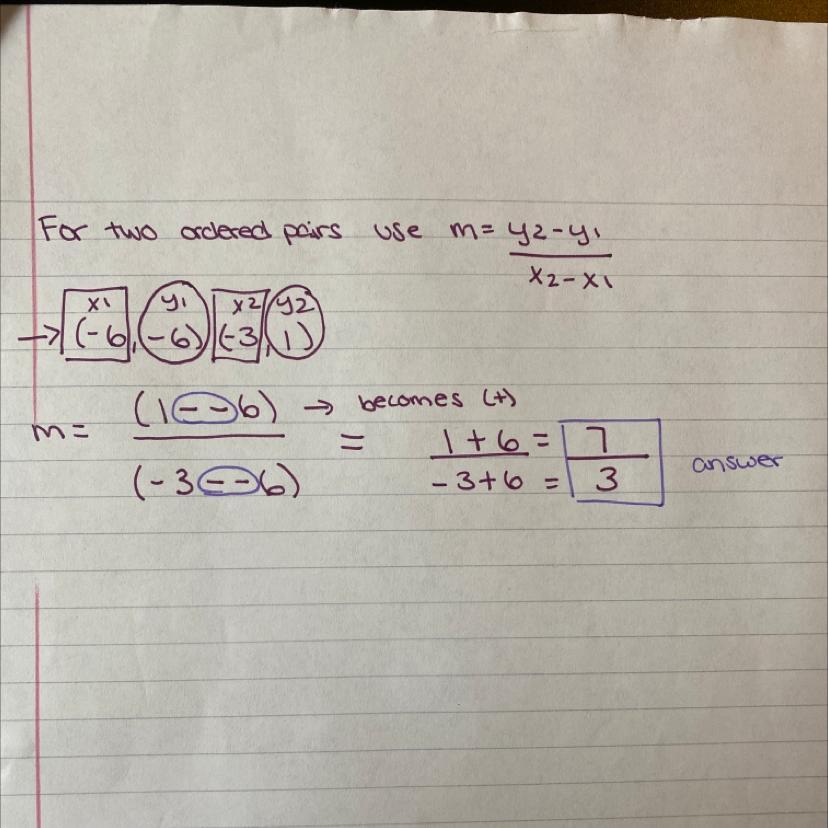 For two ordered pairs use m= y2-y1
x2-x1
x1 y1 x2 y2
→ (-6, -6) (-3, 1)
m= (1--6) → becomes (+)
(-3--6)
= 1+6 = 7
-3+6 = 3
answer